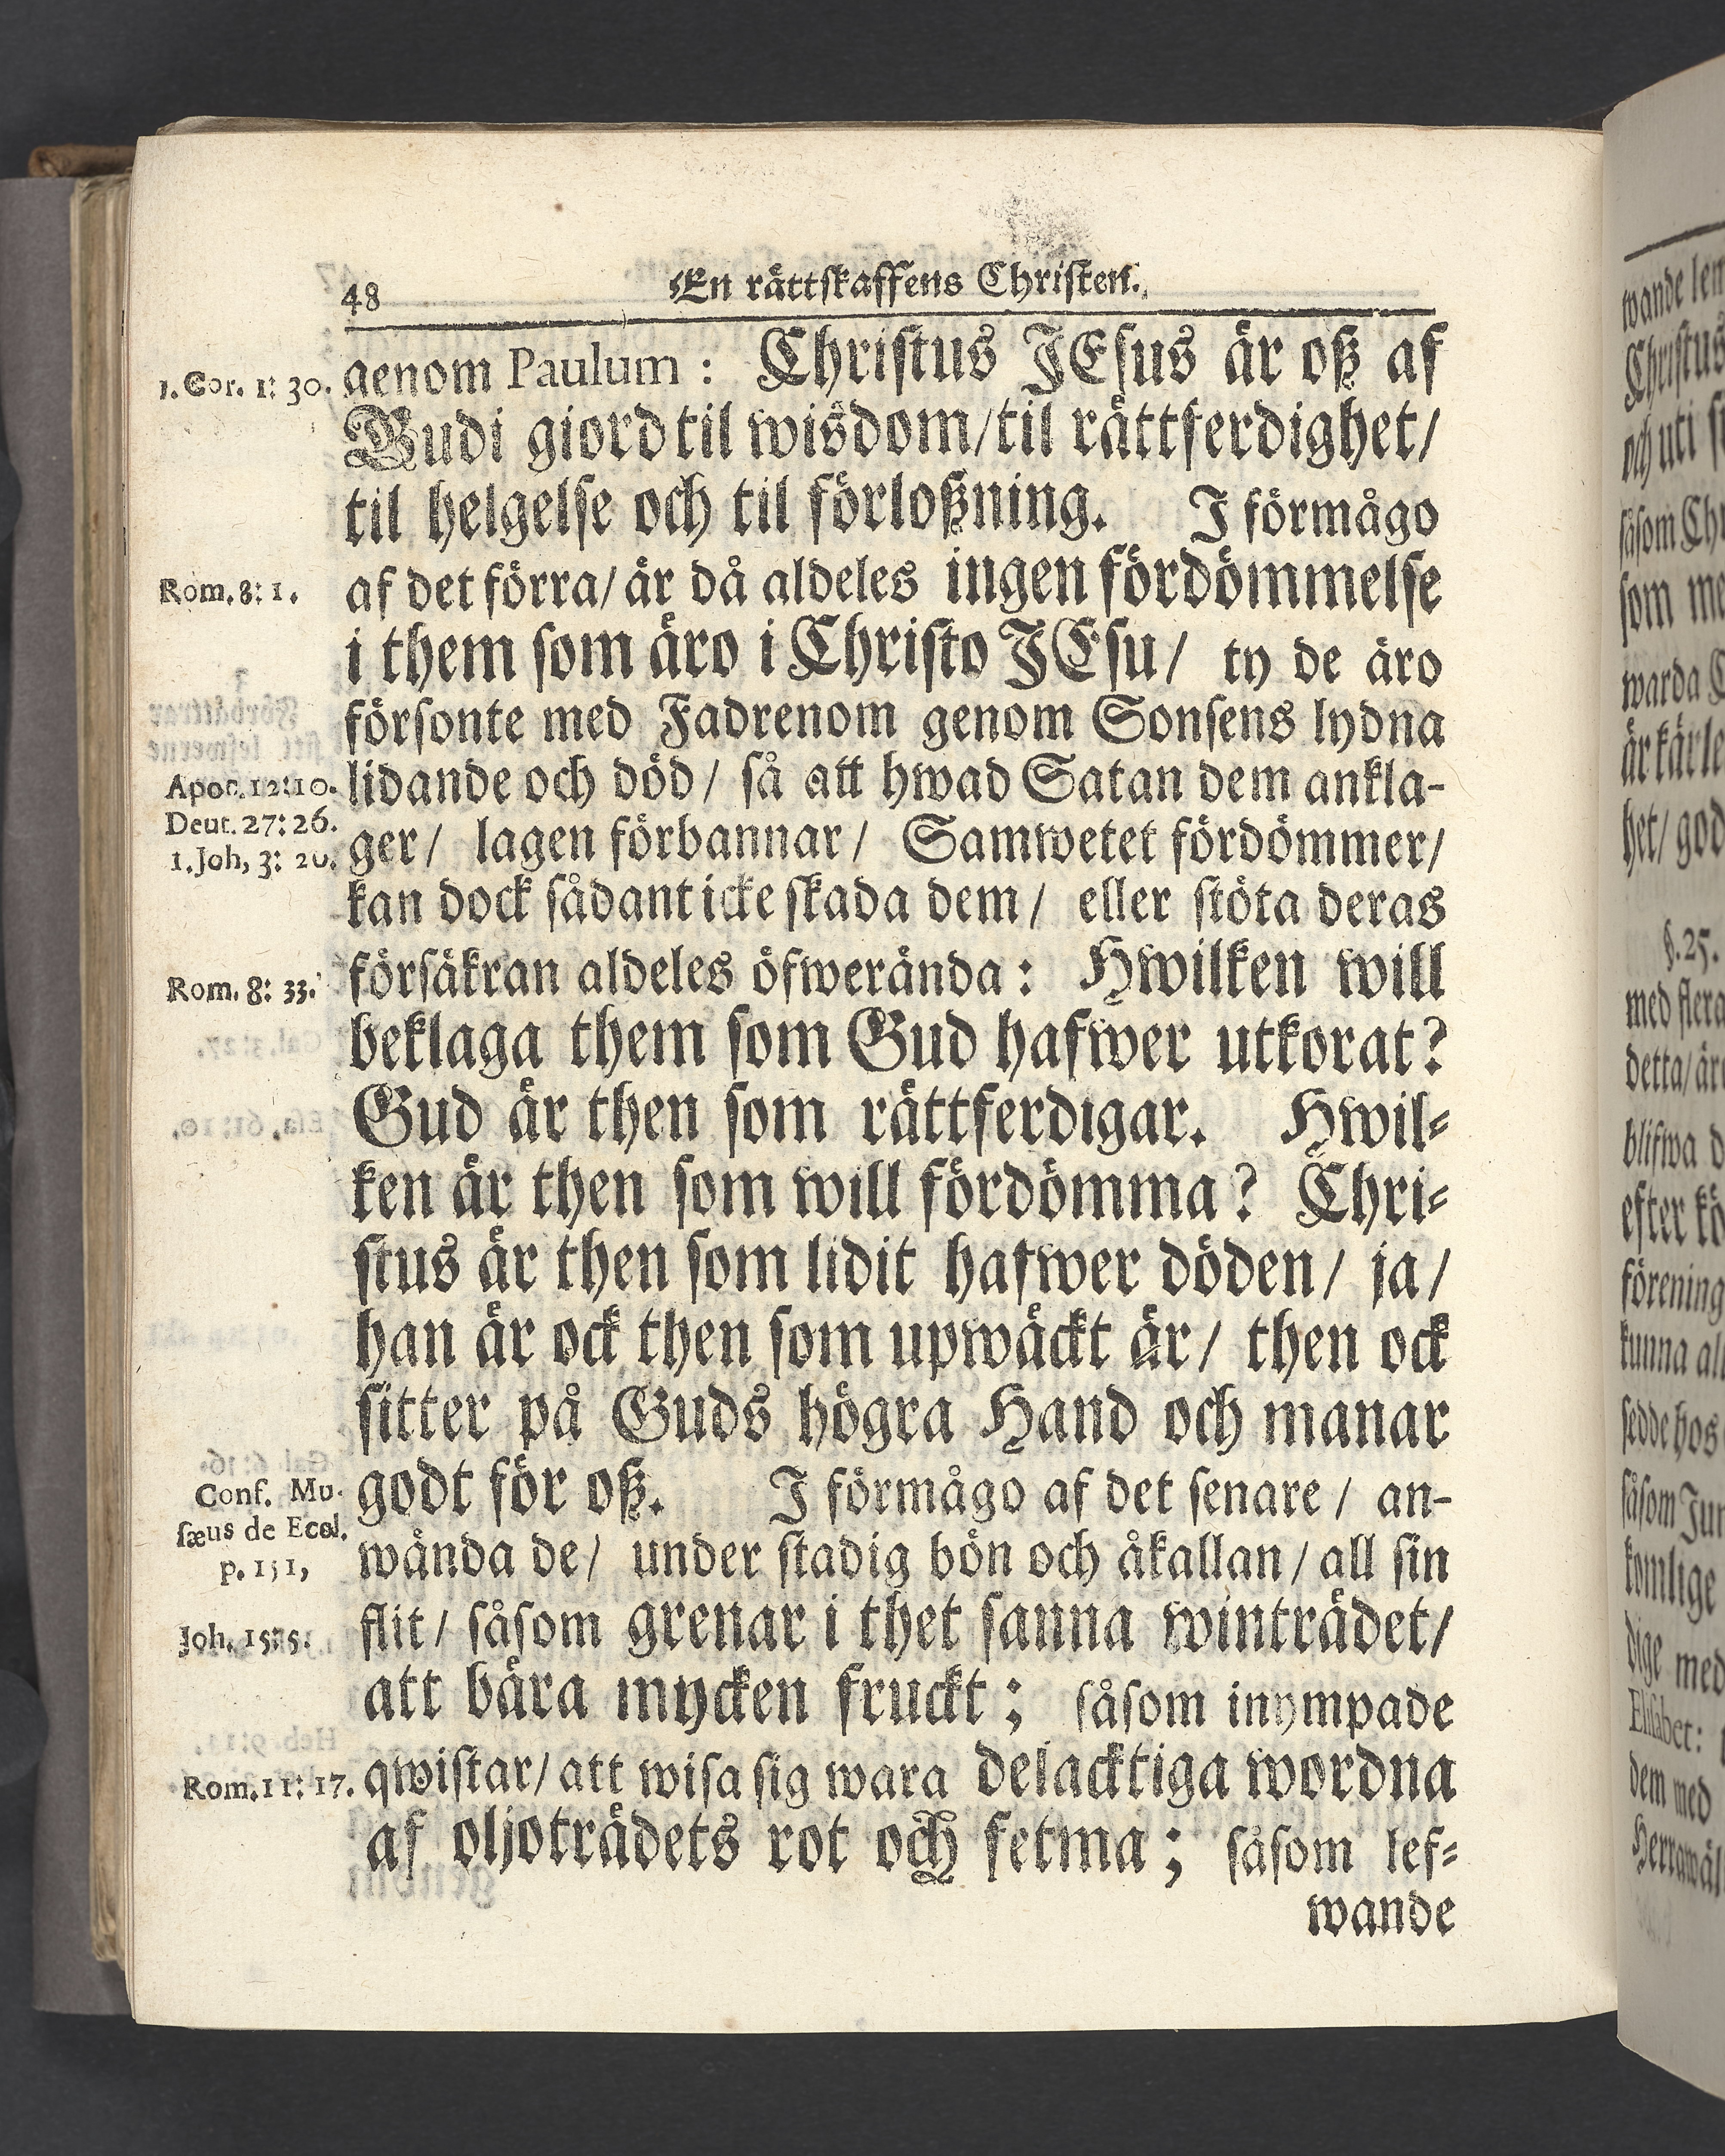 48 En rättskaffens Christen.
1. Cor. 1: 30. genom Paulum: Christus JEsus är oß af
Gudi giord til wisdom/til rättferdighet/
til helgelse och til förloßning. I förmågo
Rom. 8: 1. af det förra/ är då aldeles ingen fördömmelse
i them som äro i Christo JEsu/ ty de äro
försonte med Fadrenom genom Sonsens lydna
Apoc. 12:10. lidande och död/ så att hwad Satan dem ankla-
Deut. 27: 26.
1. Joh, 3: 20. ger/ lagen förbannar/ Samwetet fördömmer/
kan dock sådant icke skada dem/ eller stöta deras
Rom. 8: 33. försäkran aldeles öfwerända: Hwilken will
beklaga them som Gud hafwer utkorat?
Gud är then som rättferdigar. Hwil-
ken är then som will fördömma? Chri-
stus är then som lidit hafwer döden/ ja/
han är ock then som upwäckt är/ then ock
sitter på Guds högra Hand och manar
Conf. Mu- godt för oß. I förmågo af det senare/ an-
sæus de Eccl.
p. 151, wända de/ under stadig bön och åkallan/ all sin
Joh. 15:5. flit/ såsom grenar i thet sanna winträdet/
att bära mycken fruckt; såsom inympade
Rom. 11: 17. qwistar/ att wisa sig wara delacktiga wordna
af oljoträdets rot och fetma; såsom lef-
wande
wande
Christus
och uti
såsom
som
warda
är
het/ god
§. 25.
med flera
detta/
blifwa
efter
förening
kunna
sedde hos
såsom
med
Elisabet:
dem med